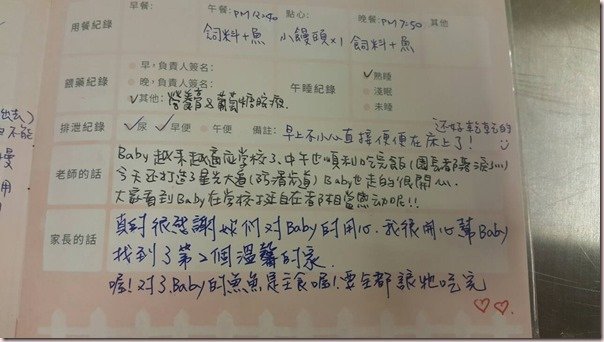 早餐: 午餐: PM 12=40 點心: 晚餐: PM 7=50 其他
用餐紀錄 飼料+魚 小饅頭×1 飼料+魚
早,負責人簽名: ✓熟睡
餵藥紀錄 晚,負責人簽名: 午睡紀錄 淺眠
✓其他: 營養膏&葡萄糖胺 未睡
排泄紀錄 ✓尿 ✓早便 午便 備註: 早上不小心直接便便在床上了! 還好乾乾的
Baby越來越適應學校了,中午也順利吃完飯(園長都落淚
老師的話 今天還打造了星光大道(防滑步道)Baby也走的很開心.
大家看到Baby在學校好自在都相當感動呢!!
真的很感謝妳們對Baby的用心,我很開心幫Baby
家長的話 找到了第2個溫馨的家.
喔!對了,Baby的魚魚是主食喔!要全都讓牠吃完